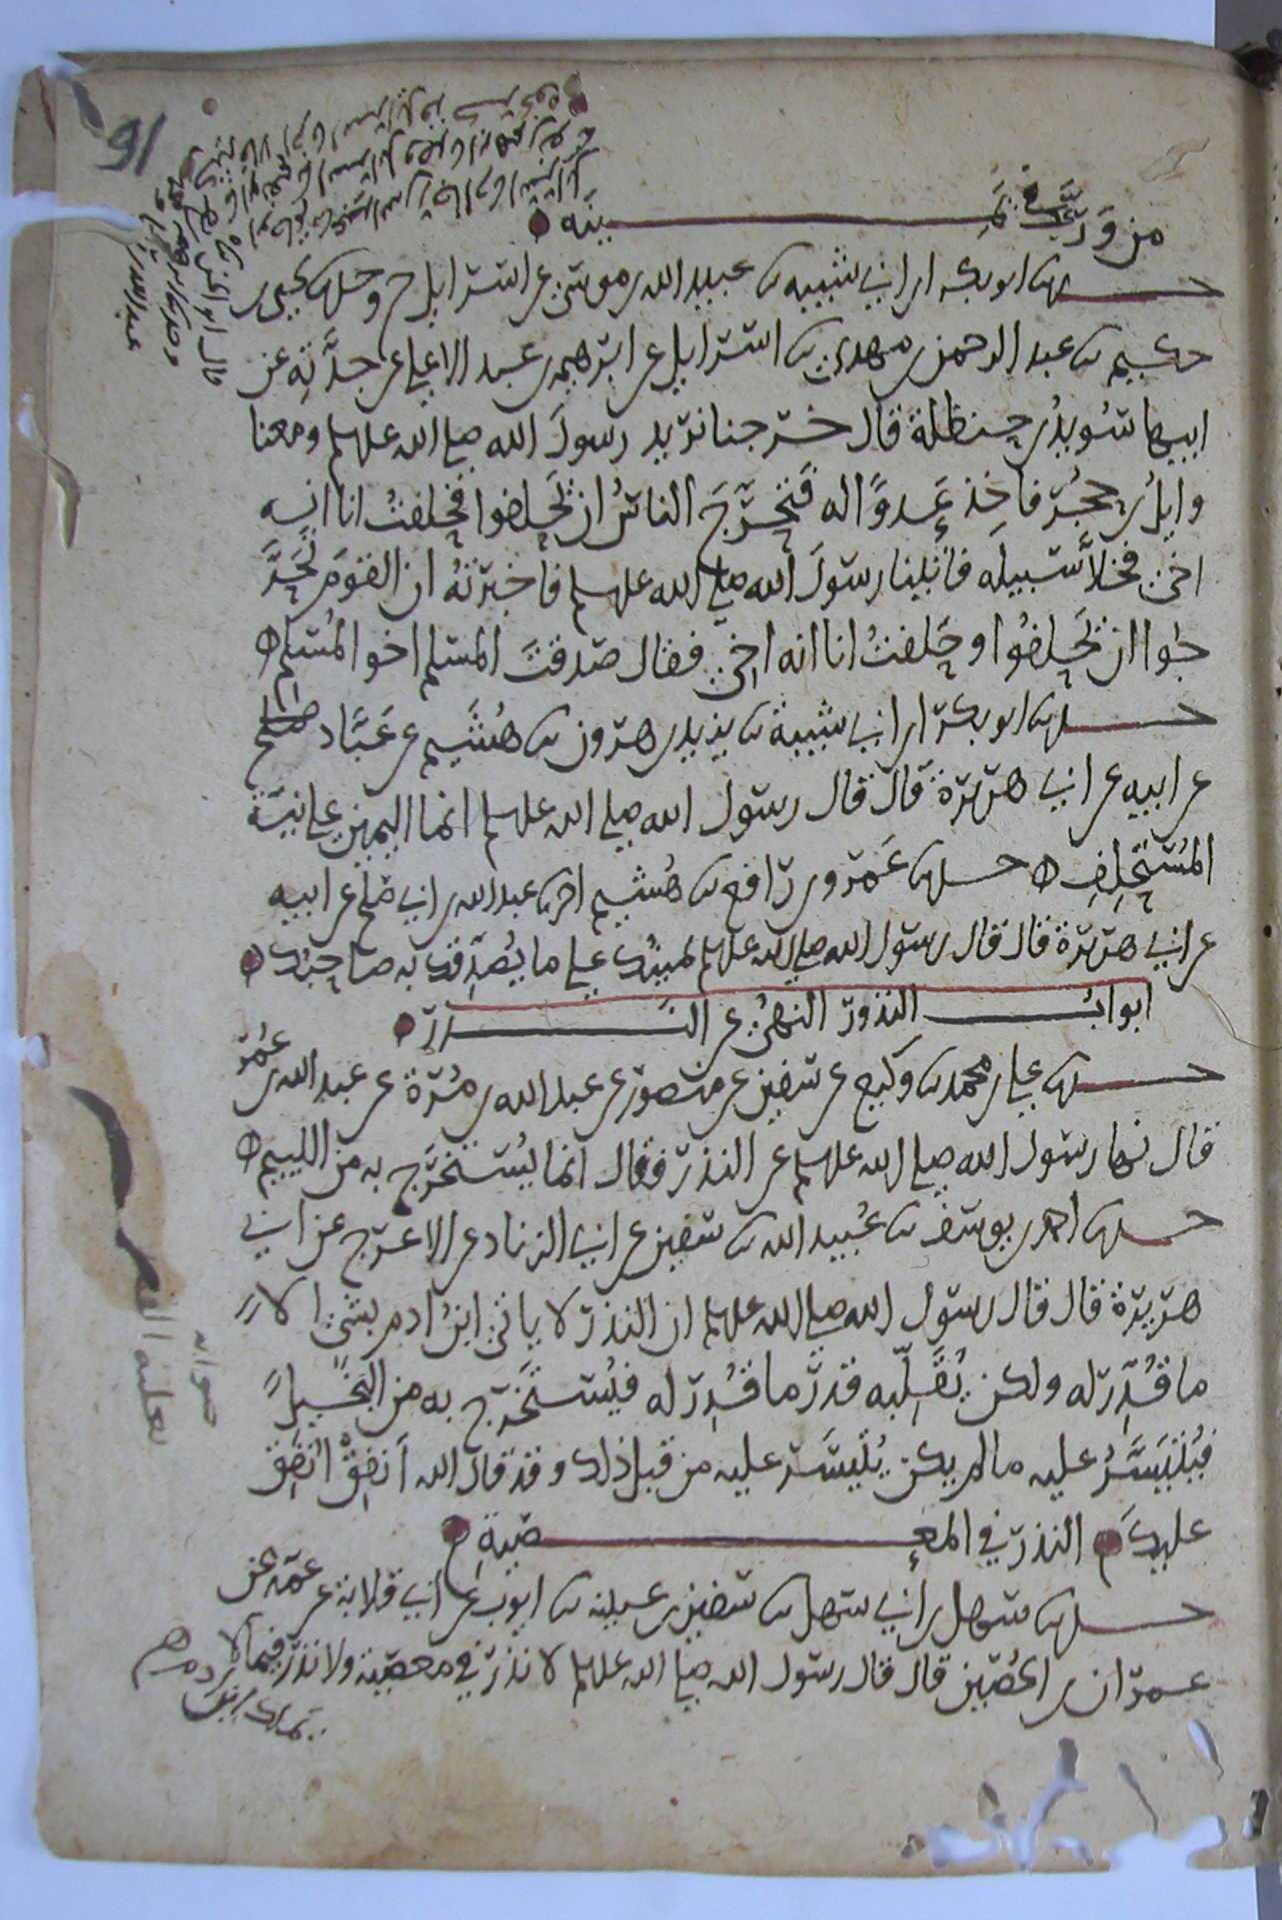 من ورى في يمينه
حدثنا ابو بكر ابن ابي شيبة نا عبيد الله بن موسى عن اسرايل ح وحدثنا يحيى بن
حكيم نا عبد الرحمن بن مهدي نا اسرايل عن ابرهيم بن عبد الاعلى عن جدته عن
ابيها سويد بن حنظلة قال خرجنا نريد رسول الله صلى الله عليه وسلم ومعنا
وايل بن حجر فاخذه عدو له فتحرج الناس ان يحلفوا فحلفت انا انه
اخي فخلا سبيله فاتينا رسول الله صلى الله عليه وسلم فاخبرته ان القوم تحر
جوا ان يحلفوا وحلفت انا انه اخي فقال صدقت المسلم اخو المسلم
حدثنا ابو بكر ابن ابي شيبة نا يزيد بن هرون نا هشيم عن عباد بن ابي صلح
عن ابيه عن ابي هريرة قال قال رسول الله صلى الله عليه وسلم انما اليمين على نية
المستحلف حدثنا عمرو بن رافع نا هشيم اخبرنا عبد الله بن ابي صلح عن ابيه
عن ابي هريرة قال قال رسول الله صلى الله عليه وسلم يمينك على ما يصدقك به صاحبك
ابواب النذور النهي عن النذر
حدثنا علي بن محمد نا وكيع عن سفين عن منصور عن عبد الله بن مرة عن عبد الله بن عمر
قال نها رسول الله صلى الله عليه وسلم عن النذر فقال انما يستخرج به من اللييم
حدثنا احمد بن يوسف نا عبيد الله نا سفين عن ابي الزناد عن الاعرج عن ابي
هريرة قال قال رسول الله صلى الله عليه وسلم ان النذر لا ياتي ابن ادم بشي الا
ما قدر له ولكن يغلبه قدر ما قدر له فيستخرج به من البخيل
فيتيسر عليه ما لم يكن يتيسر عليه من قبل ذلك وقد قال الله انفق انفق
عليك النذر في المعصية
حدثنا سهل بن ابي سهل نا سفين بن عيينة نا ايوب عن ابي قلابة عن عمه عن
عمران بن الحصين قال قال رسول الله صلى الله عليه وسلم لا نذر في معصية ولا نذر فيما لا
يملك ابن ادم